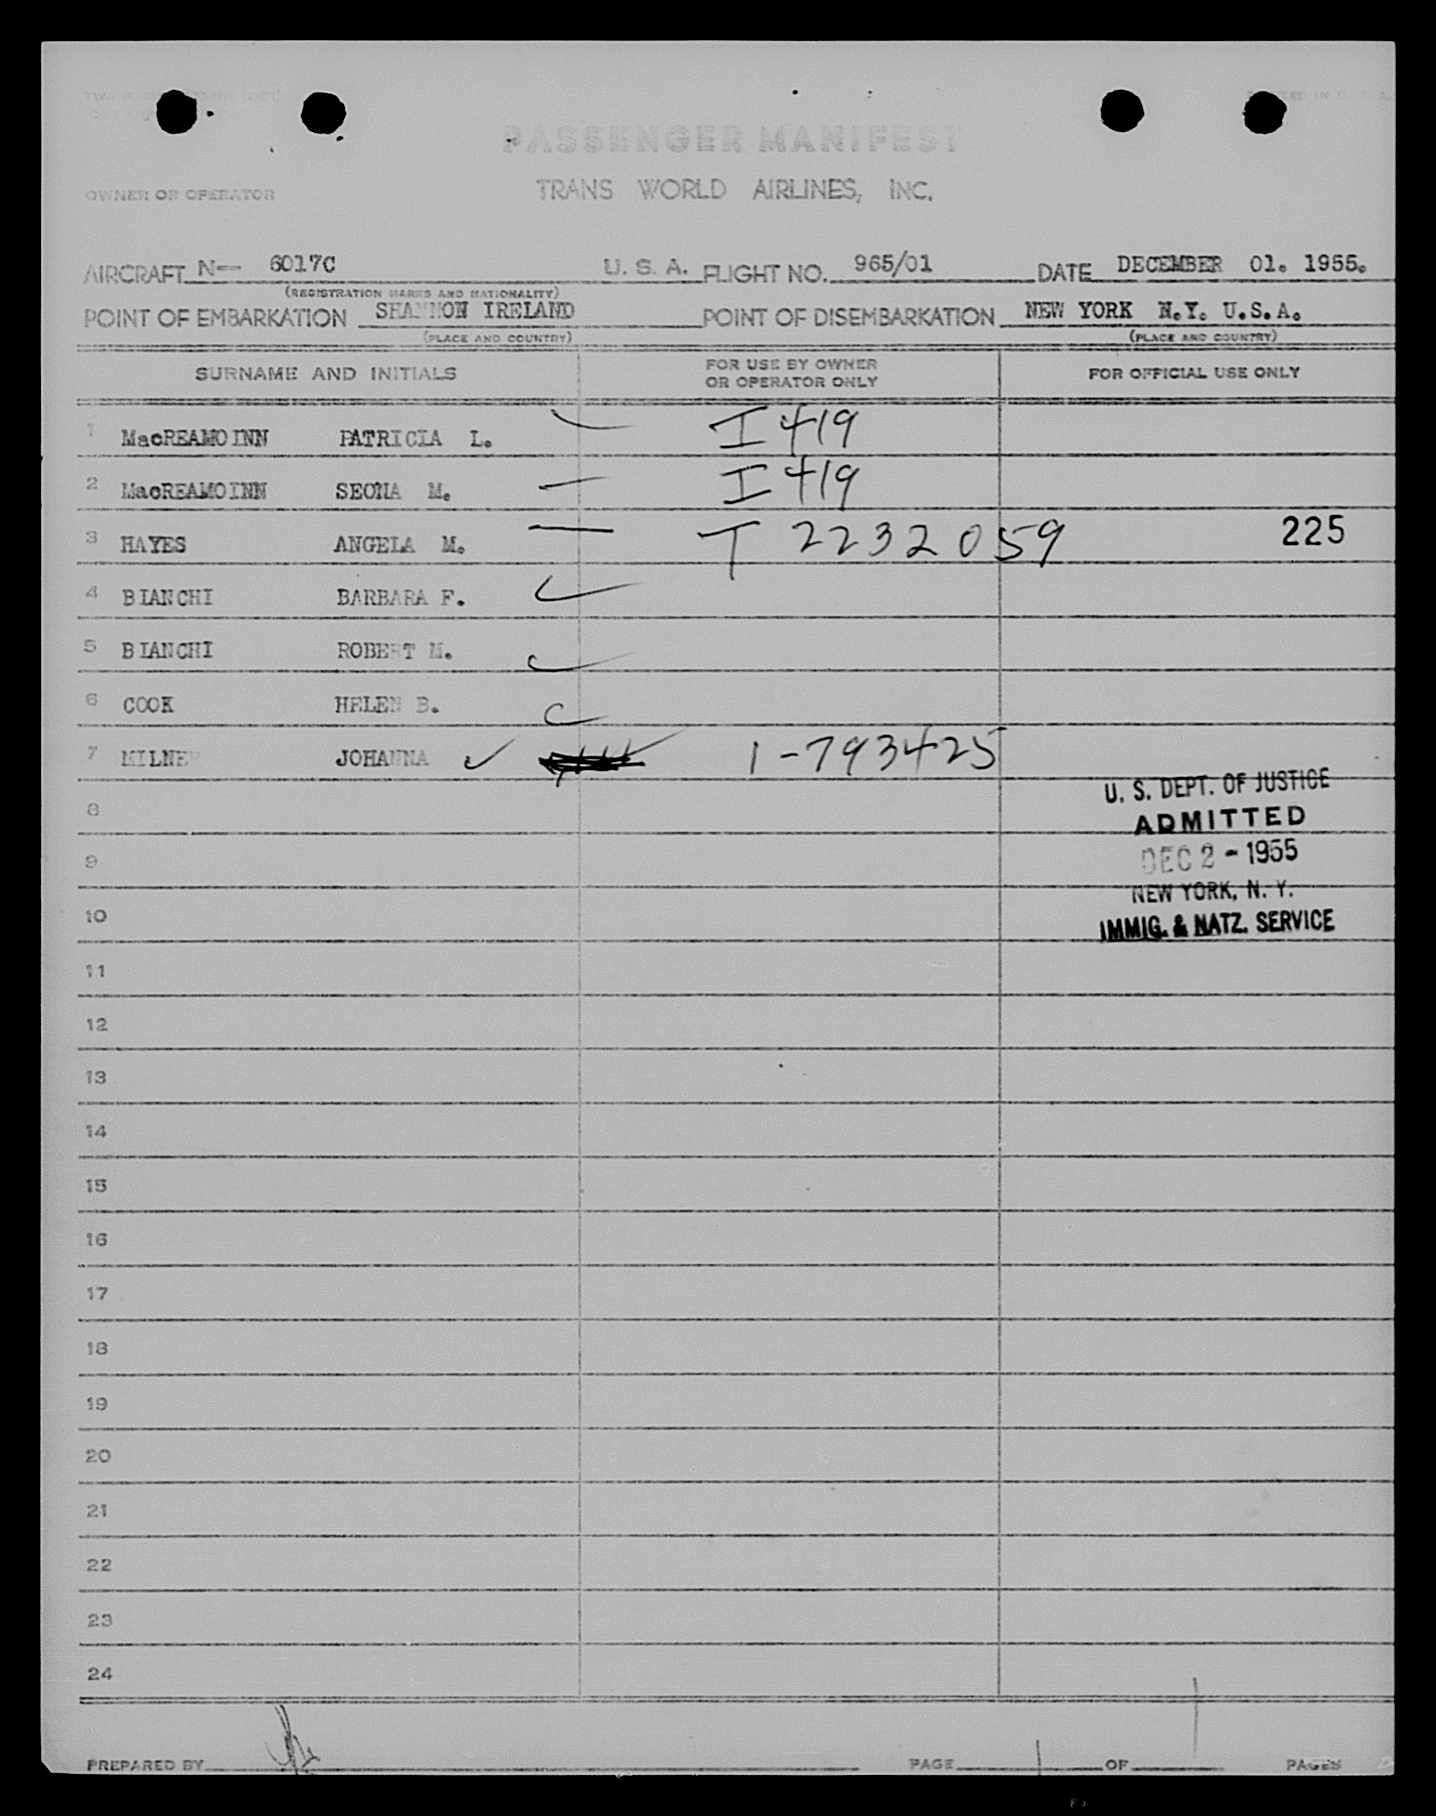 PASSENGER MANIFEST
OWNER OR OPERATOR TRANS WORLD AIRLINES, INC.
AIRCRAFT N-- 6017C U. S. A. FLIGHT NO. 965/01 DATE DECEMBER 01. 1955.
(REGISTRATION MARKS AND NATIONALITY)
POINT OF EMBARKATION SHANNON IRELAND POINT OF DISEMBARKATION NEW YORK N.Y. U.S.A.
(PLACE AND COUNTRY) (PLACE AND COUNTRY)
SURNAME AND INITIALS FOR USE BY OWNER OR OPERATOR ONLY FOR OFFICIAL USE ONLY
1 MacREAMOINN PATRICIA L. I 419
2 MacREAMOINN SEONA M. I 419
3 HAYES ANGELA M. T 2232059 225
4 BIANCHI BARBARA F.
5 BIANCHI ROBERT M.
6 COOK HELEN B.
7 MILNER JOHANNA 1-793425
U. S. DEPT. OF JUSTICE
8
ADMITTED
9
DEC 2 - 1955
NEW YORK, N. Y.
10
IMMIG. & NATZ. SERVICE
11
12
13
14
15
16
17
18
19
20
21
22
23
24
PREPARED BY PAGE 1 OF 1 PAGES